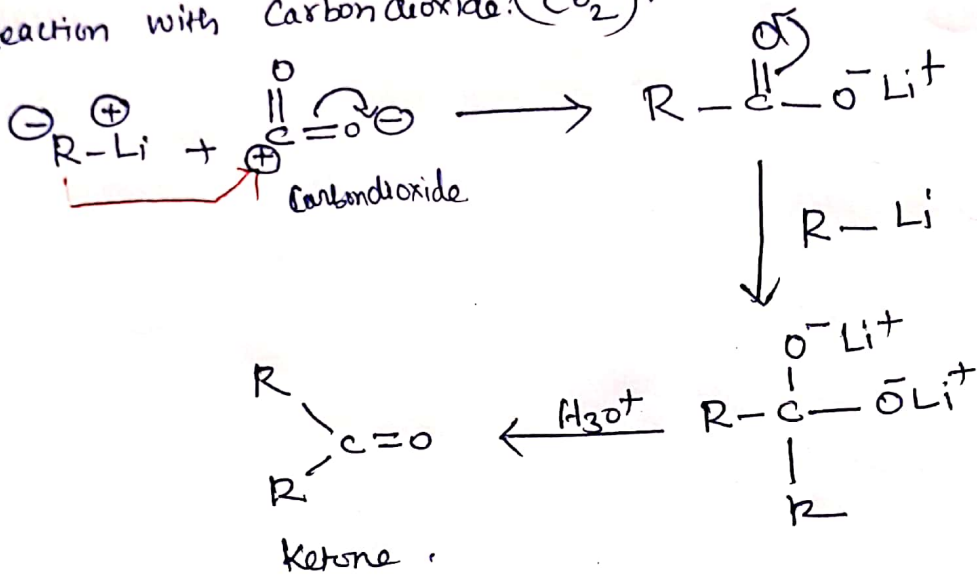 eaction with Carbondioxide. (CO2)
O
⊖ ⊕ || ⊖
R-Li + C=O → R-C-O⁻Li⁺
⊕ O
Carbondioxide
R-Li
O⁻Li⁺
R
C=O ← H3O⁺ R-C-O⁻Li⁺
R
R
Ketone.